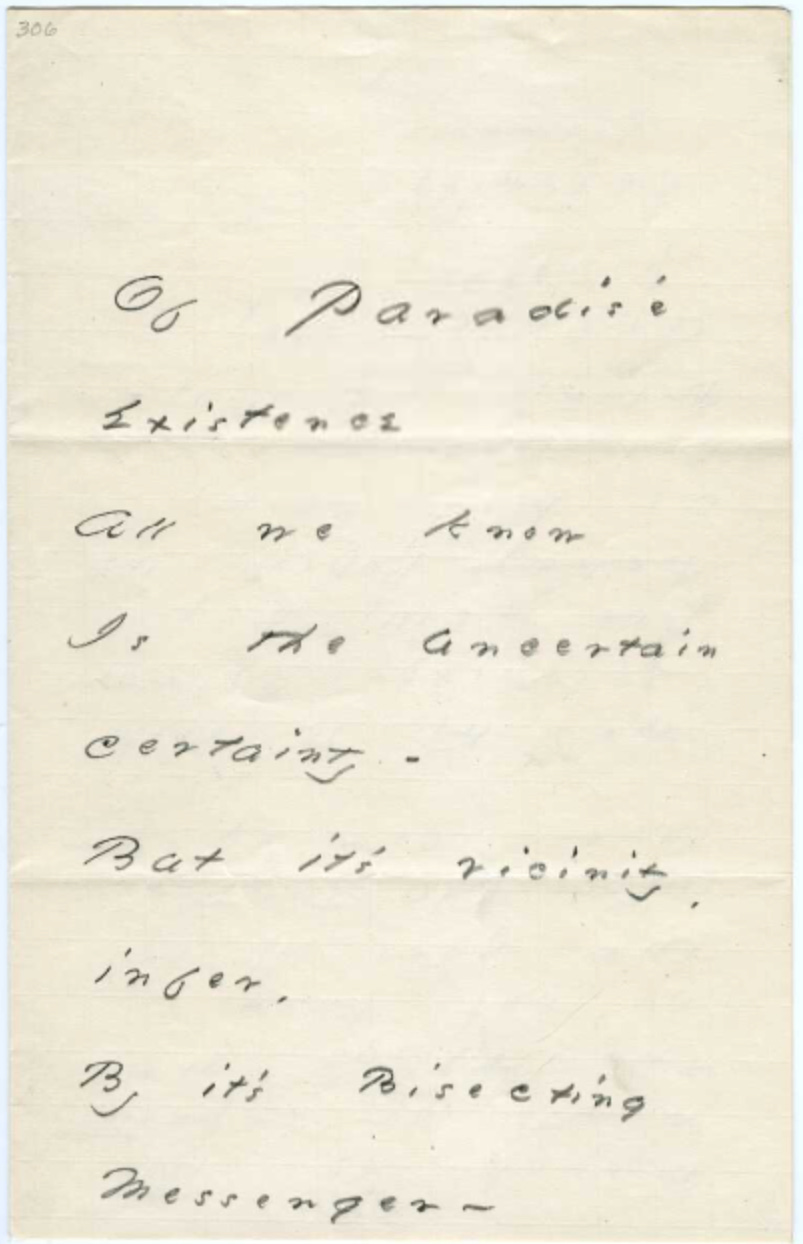 306
Of Paradise'
Existence
All we know
Is the uncertain
certainty -
But it's vicinity,
infer,
By it's Bisecting
Messenger -